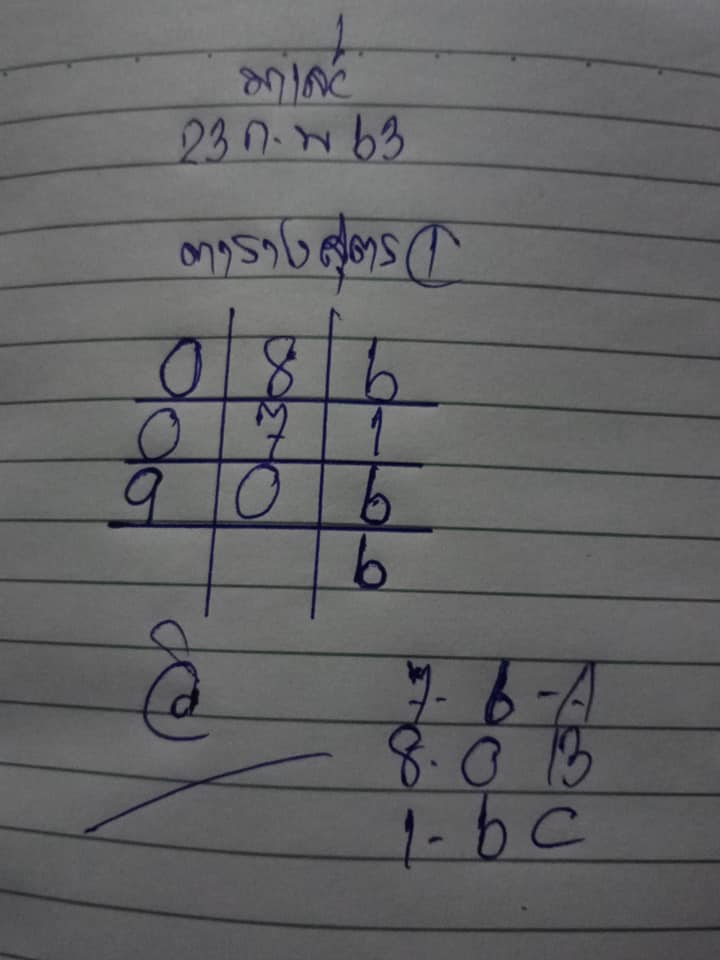 มาเลย์
23 ก.พ 63
ตารางสูตร 1
0 8 6
0 7 1
9 0 6
6
7- 6 -A
8. 0 B
1- 6 C